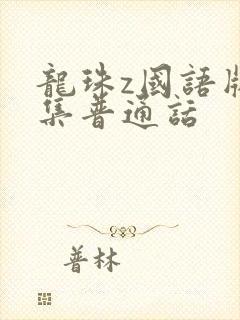 龍珠z國語版
集普通話
普林